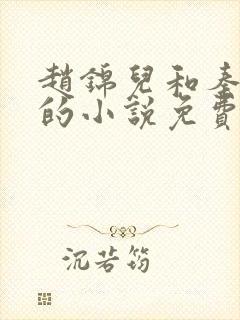 趙錦兒和秦
的小說免費
沉若筠